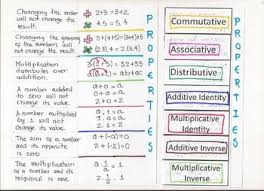 Changing the order
will not change the
result.
2+3=3+2
4.5 = 5.4
Changing the grouping
of the numbers will
not change the result
Multiplication
distributes over
addition.
A number added
to zero will not
change its value.
a+0=a
0+a=a
A number multiplied
by 1 will not
change its value.
The sum of a
number and its opposite
is zero
a+(-a)=0
The multiplication
of a number and its
reciprocal is one.
a · 1/a = 1
PROPERTIES
Commutative
Associative
Distributive
Additive Identity
Multiplicative
Identity
Additive Inverse
Multiplicative
Inverse
PROPERTIES